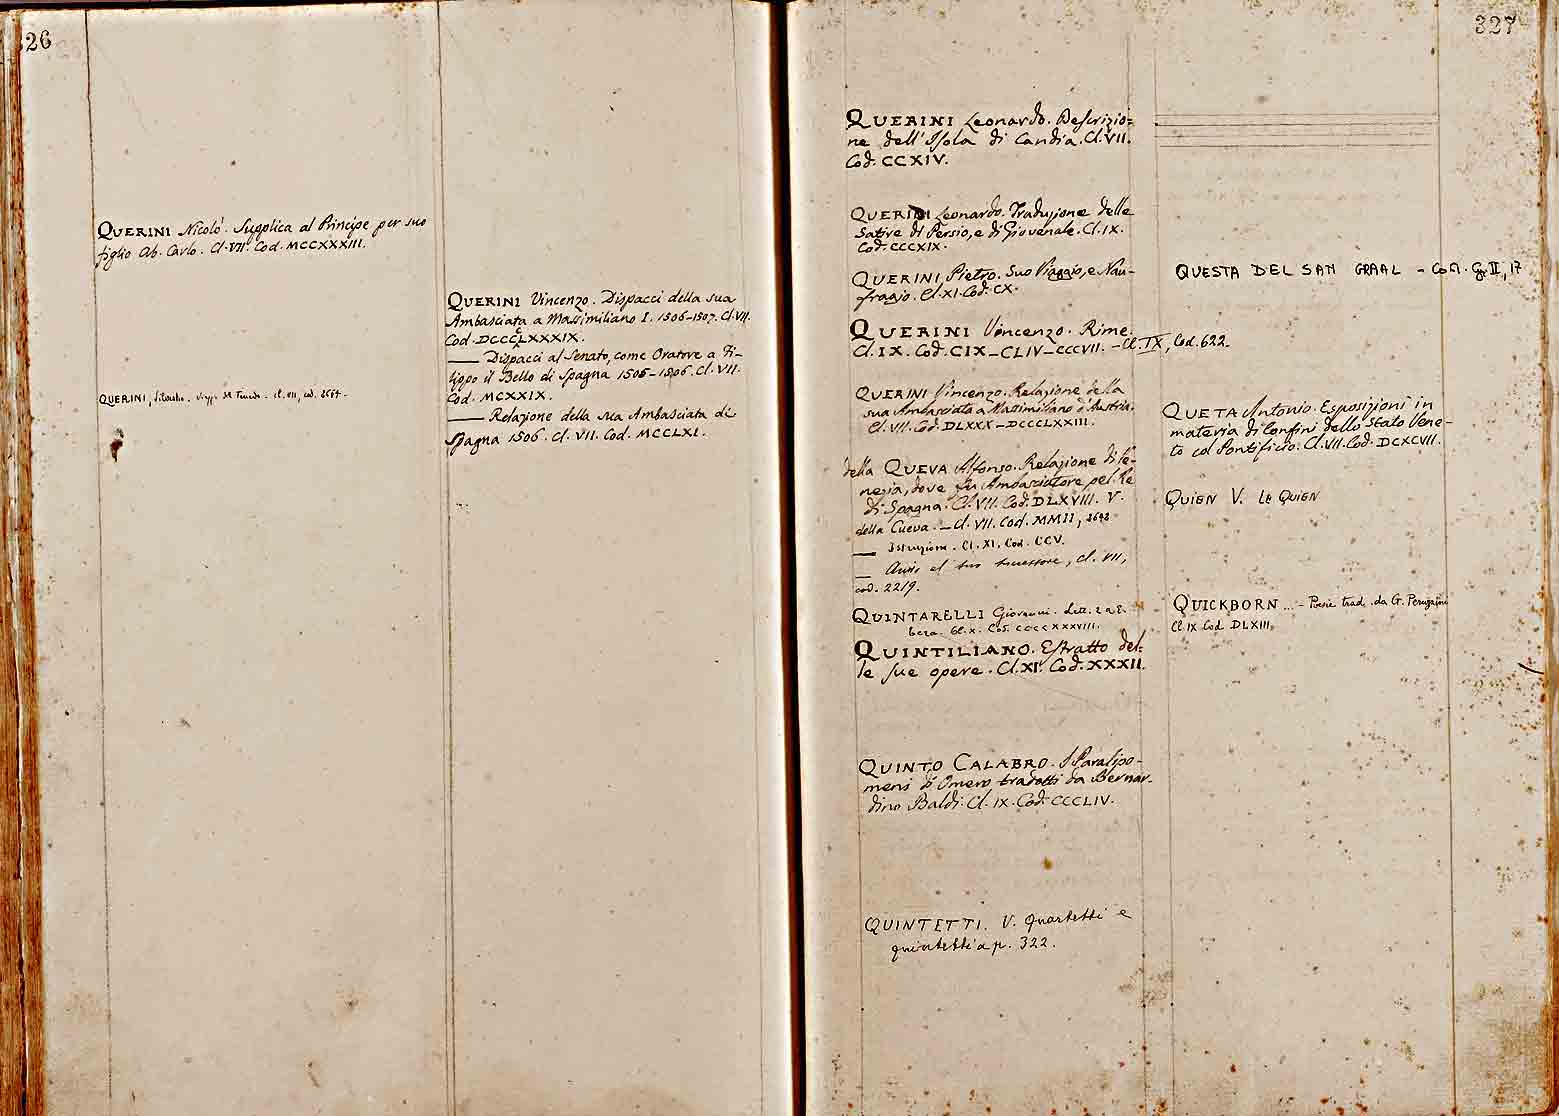 26
QUERINI Nicolò. Supplica al Principe per suo
figlio Ab. Carlo. Cl. VII. Cod. MCCXXXIII.
QUERINI, Cl. VII, cod.
QUERINI Vincenzo. Dispacci della sua
Ambasciata a Massimiliano I. 1506-1507. Cl. VII.
Cod. DCCCLXXXIX.
— Dispacci al Senato, come Oratore a Fi-
lippo il Bello di Spagna 1505-1506. Cl. VII.
Cod. MCXXIX.
— Relazione della sua Ambasciata di
Spagna 1506. Cl. VII. Cod. MCCLXI.
327
QUERINI Leonardo. Descrizio=
ne dell'Isola di Candia. Cl. VII.
Cod. CCXIV.
QUERINI Leonardo. Traduzione delle
Satire di Persio, e di Giovenale. Cl. IX.
Cod. CCCXIX.
QUERINI Pietro. Suo Viaggio, e Nau-
fragio. Cl. XI. Cod. CX.
QUERINI Vincenzo. Rime.
Cl. IX. Cod. CIX-CLIV-CCCVII. - Cl. IX, Cod. 622.
QUERINI Vincenzo. Relazione della
sua Ambasciata a Massimiliano d'Austria.
Cl. VII. Cod. DLXXX-DCCCLXXIII.
della QUEVA Alfonso. Relazione di Ve-
nezia, dove fu Ambasciatore pel Re
di Spagna. Cl. VII. Cod. DLXVIII. V.
della Cueva. - Cl. VII. Cod. MMII,
— Istruzione. Cl. XI. Cod. CCV.
— al suo successore, cl. VII,
cod. 2219.
QUINTARELLI Giovanni. Lett.
Cl. X. Cod. CCCCXXXVIII.
QUINTILIANO. Estratto del-
le sue opere. Cl. XI. Cod. XXXII.
QUINTO CALABRO. I Paralipo-
meni di Omero tradotti da Bernar-
dino Baldi. Cl. IX. Cod. CCCLIV.
QUINTETTI. V. Quartetti e
quintetti a p. 322.
QUESTA DEL SAN GRAAL - II, 17
QUETA Antonio. Esposizioni in
materia di Confini dello Stato Vene-
to col Pontificio. Cl. VII. Cod. DCXCVII.
QUIEN V. LE QUIEN
QUICKBORN ... - Poesie trad. da G. Peruzzini
Cl. IX Cod. DLXIII.